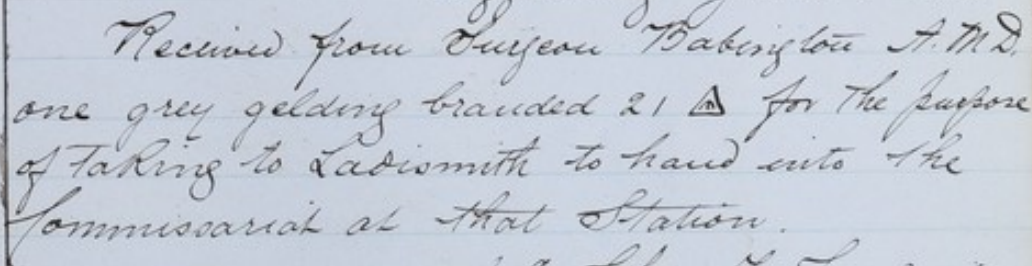 Received from Surgeon Babington A.M.D.
one grey gelding branded 21 for the purpose
of taking to Ladismith to hand into the
Commissariat at that Station.